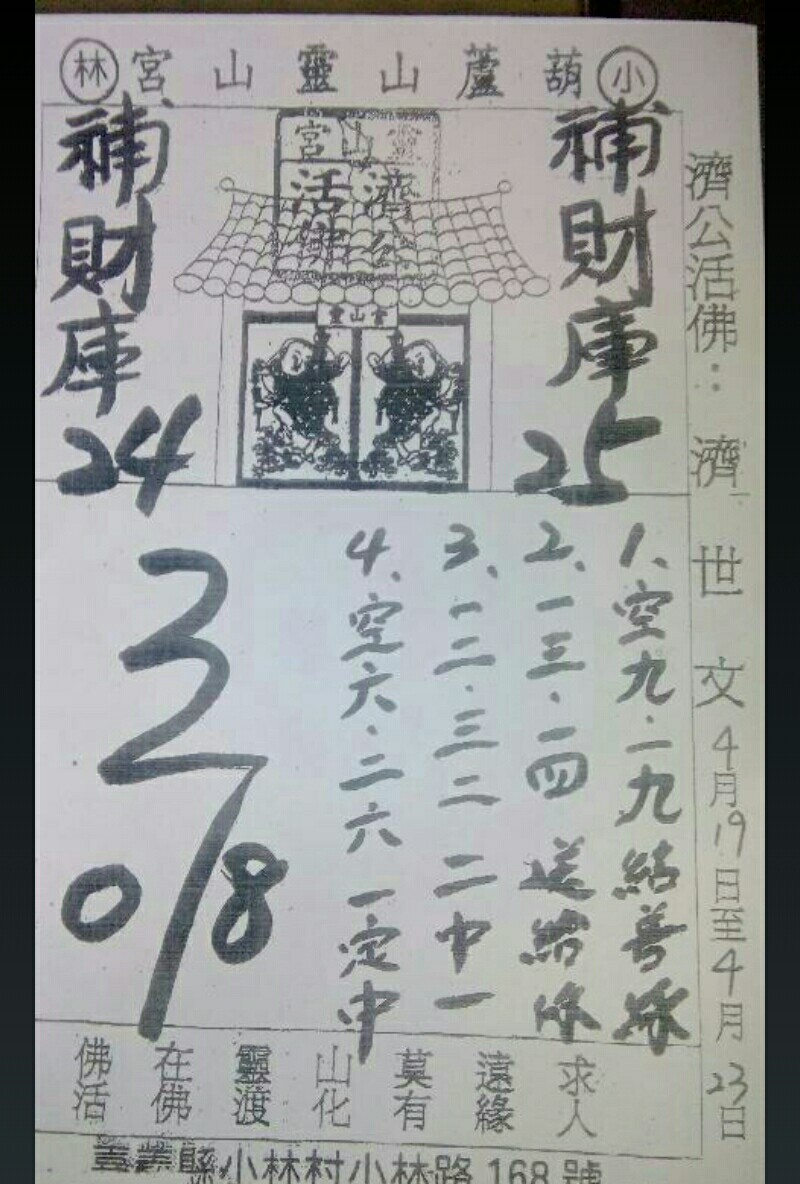 小葫蘆山靈山宮林
濟公活佛：濟世文4月19日至4月23日
補財庫
25
靈山宮
濟公活佛
靈山宮
補財庫
24
1、空九．一九結善緣
2、一三．一四 送給你
3、一二．三二 二中一
4、空六．二六 一定中
3
0/8
求人
遠緣
莫有
山化
靈渡
在佛
佛活
嘉義縣小林村小林路168號